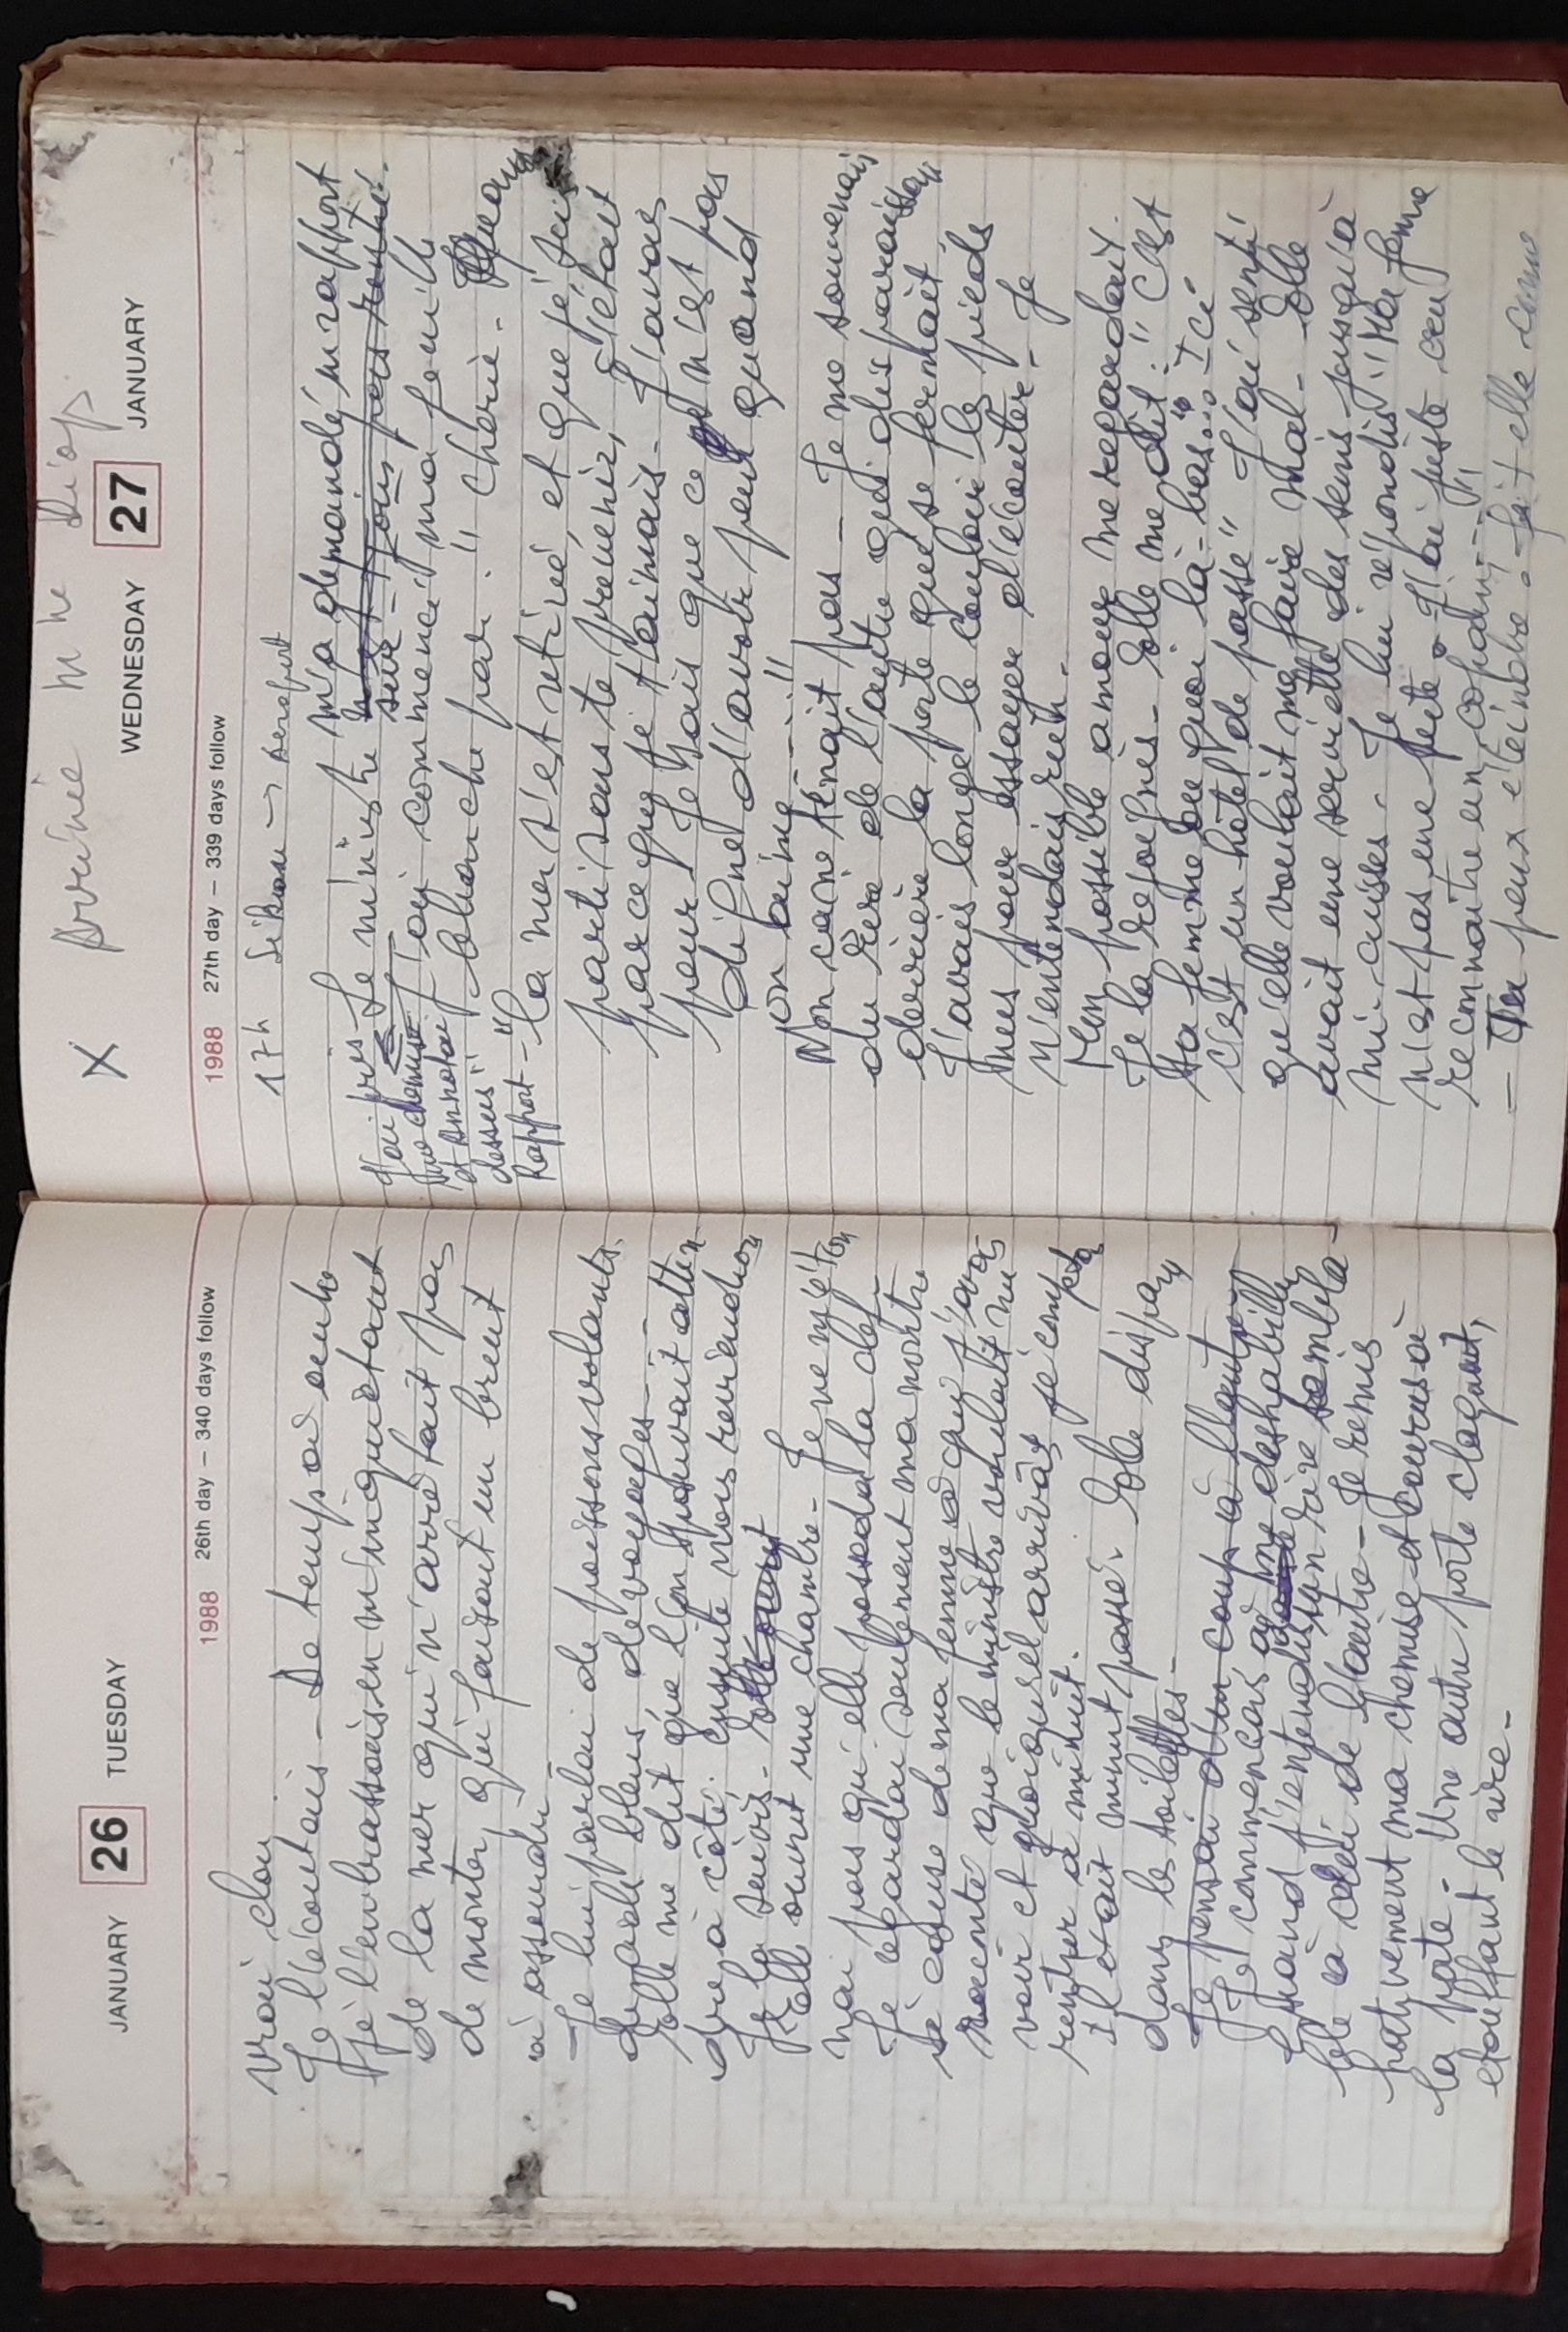 JANUARY 26 TUESDAY
1988 26th day – 340 days follow
vrai clou
Je l'écoutais – De temps à autre
je l'embrassais en m'inquiétant
de la mer qui n'arrêtait pas
de monter, qui faisait un bruit
à assourdir
– Je lui parlai de poissons volants
de sable bleus, de voyages - - -
Elle me dit que l'on pouvait atten
dre à côté. Ensuite nous reviendrons
Je la suivis. Elle ouvrit
Elle ouvrit une chambre. Je ne m'éton
nai pas qu'elle posseda la clef.
Je regardai seulement ma montre
à cause de ma femme à qui j'avais
raconté que le ministre voulait me
voir et quoiqu'il arrivât je compta
rentrer à minuit.
Il était minuit passé. Elle disparu
dans les toilettes.
Je pensai d'un coup à
Je commençais à me déshabiller
quand j'entendis un rire sembla-
ble à celui de l'autre – Je remis
hativement ma chemise et courus à
la porte. Une autre porte claquait,
étouffant le rire.
X Arrivée Mme Diop
WEDNESDAY 27 JANUARY
1988 27th day – 339 days follow
17h
Le ministre m'a demandé un rapport
sur
J'ai pris
une chemise
et annotai
dessus
Rapport –
J'ai commencé ma feuille
blanche par : " cherie -
"la mer s'est retiré, et que je suis
parti sans te prévenir, c'était
parce que je t'aimais. J'avais
peur. Je sais que ce n'est pas
digne d'avoir peur quand
on aime - - - "
Non ça ne tenait pas – Je me souvenais
du rire de l'autre qui disparaissait
derrière la porte que se fermait.
J'avais longé le couloir les pieds
nus pour essayer d'écouter. Je
n'entendais rien.
Mon possible amour me regardait.
Je la rejoignis. Elle me dit : " C'est
ta femme ou quoi là-bas... Ici
c'est un hotel de passe" J'ai senti
qu'elle voulait me faire mal. Elle
avait une serviette des seins jusqu'à
mi-cuisses. Je lui répondis "Ma femme
n'est pas une pute. J'ai juste cru
reconnaitre un copain - - - "
– Tu peux éteindre. fait elle comme